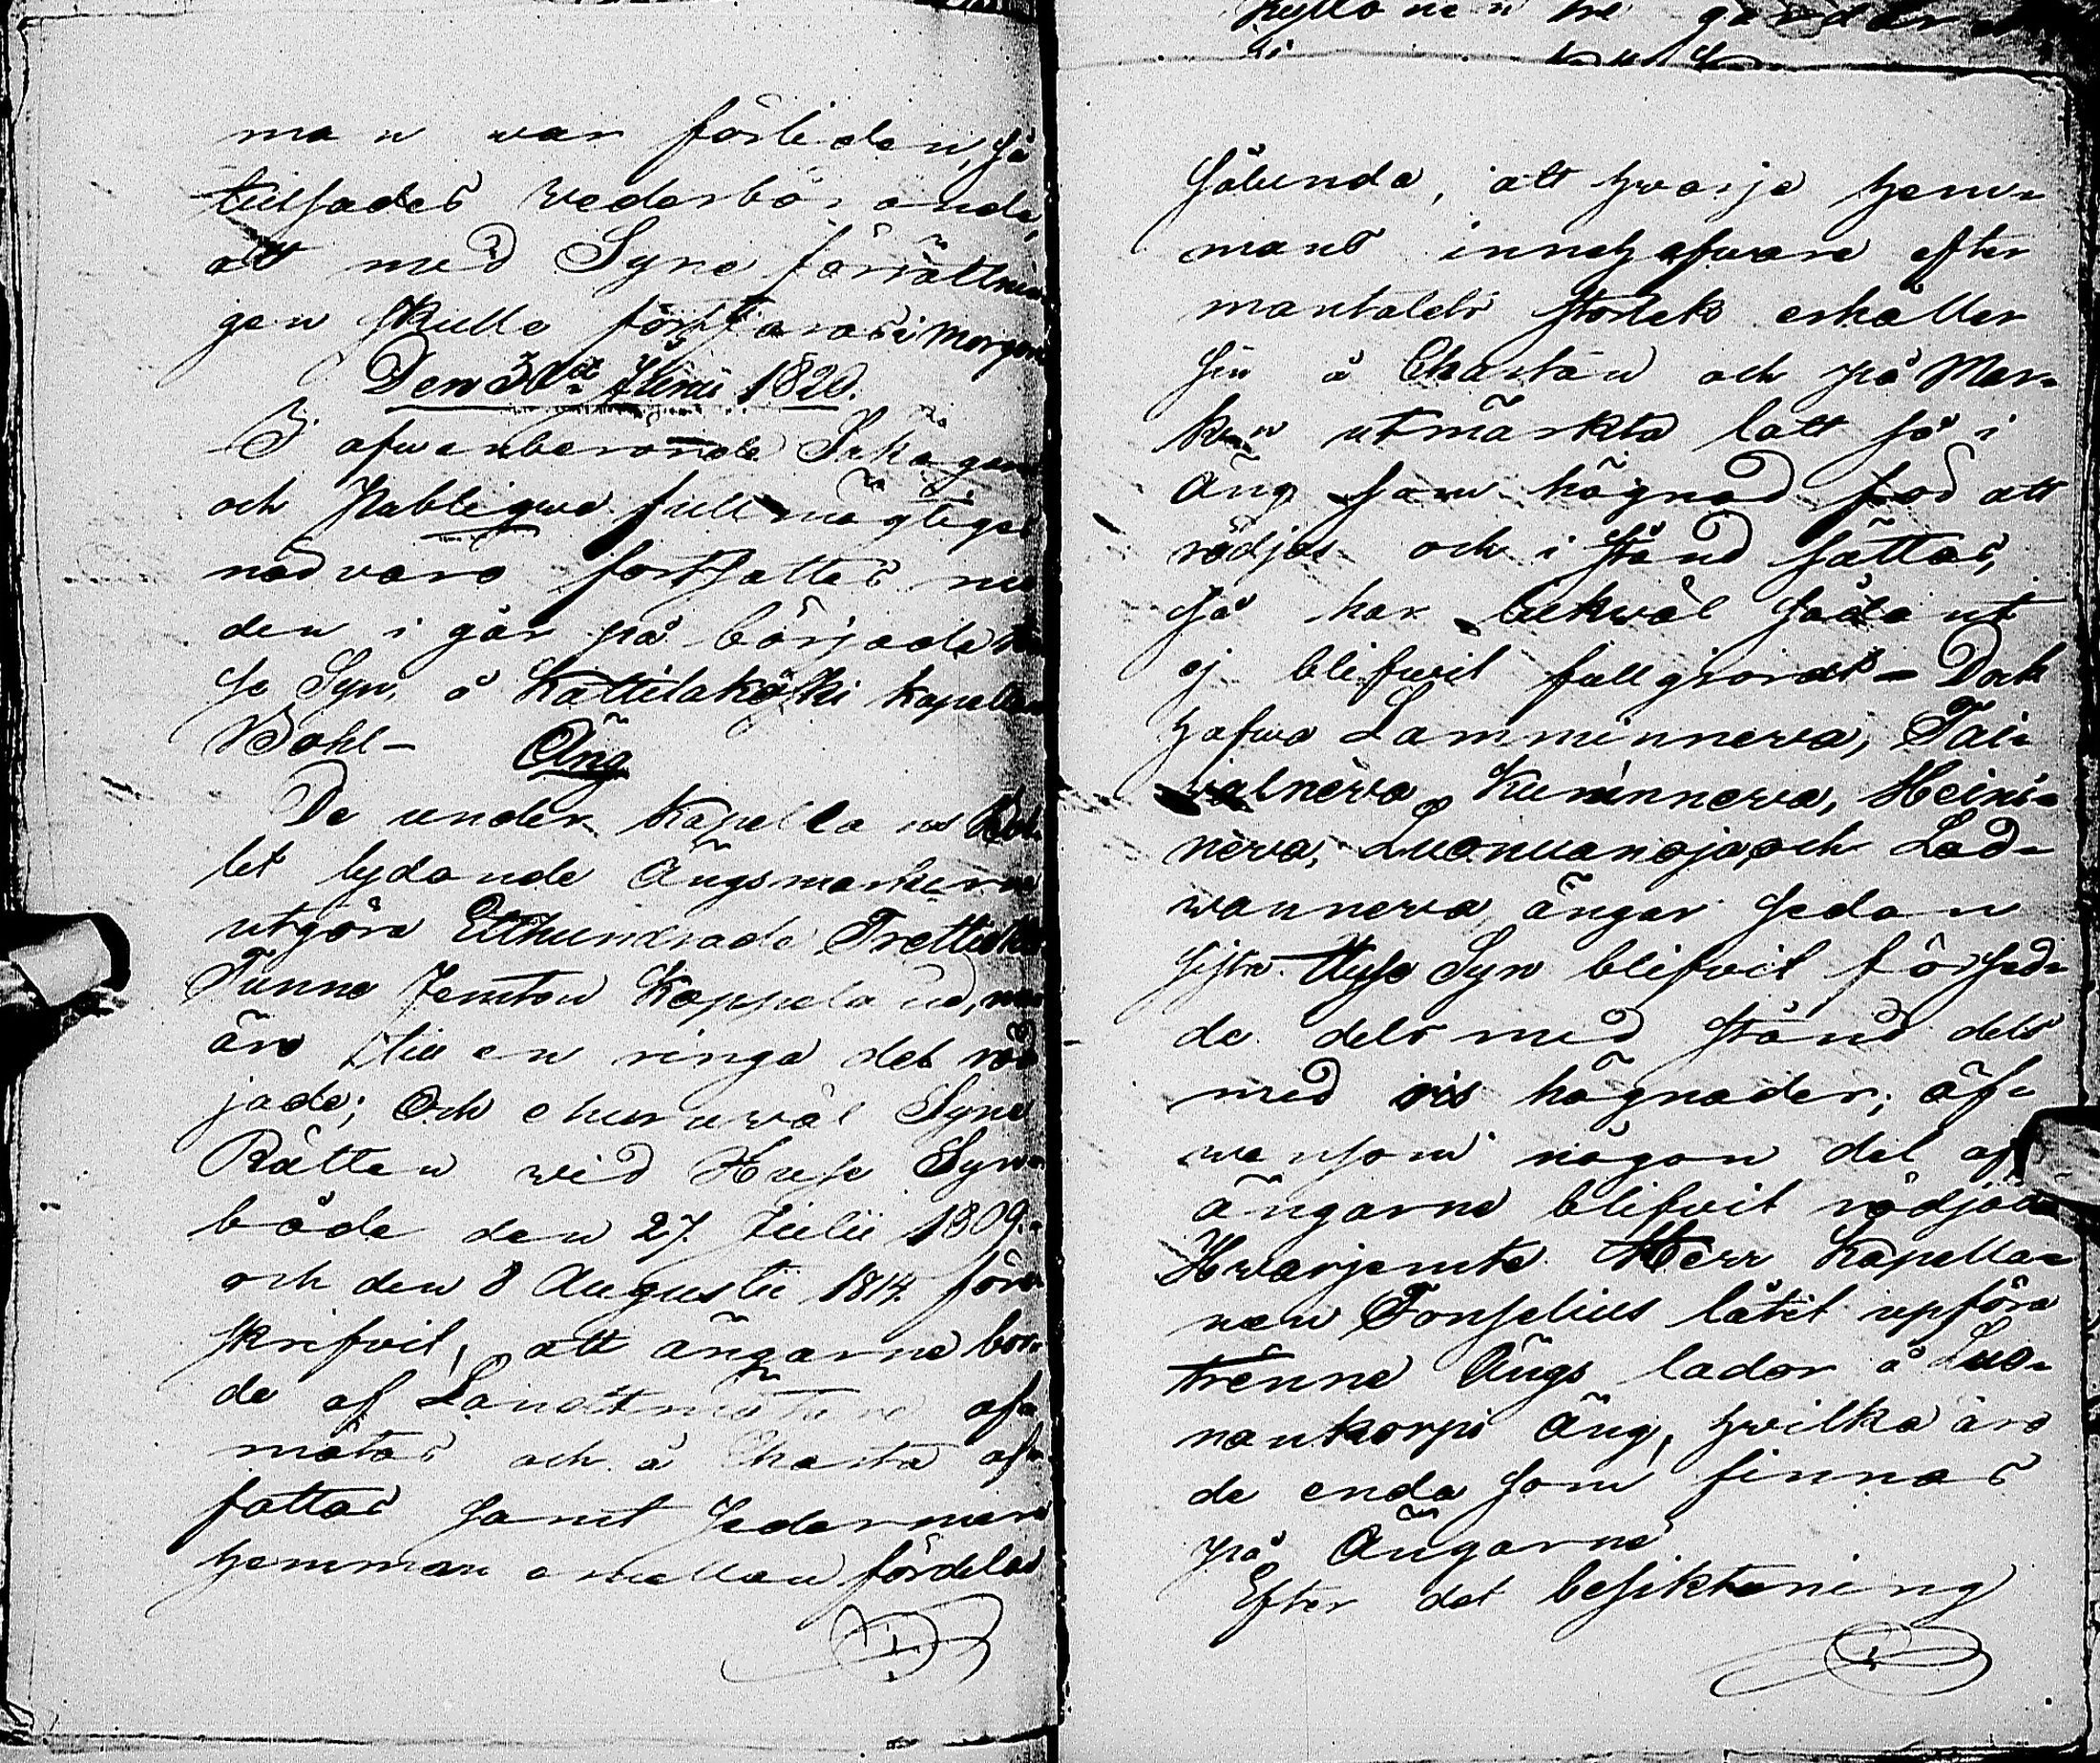 man war förliden, så
tillsades wederbörande,
att med Syne förrättnin
gen skulle fortfaras i morgon
Den 30de Junii 1820.
I ofwanberörde Sakägares
och Publique fullmägtiges
närvaro fortsattes nu
den i går på började
se Syn, å Kattilakoski kapellans
Bohl- Äng
De under Kapellans Boh-
let lydande Ängsmarkerne
utgöra Etthundrade Trettio
Tunne Femton Kappeland, men
äro till en ringa del röd
jade; Och ehuruwäl Syne
Rätten wid Huse Syn-
både den 27. Julii 1809.
och den 8 Augustii 1814. före
skrifvit, att ängarne bor-
de af Landtmätare af-
mätas och å Charta af-
fattas samt Jedermans
hemman emellan fördelas
sålunda, att hwarje hem-
mans innehafware efter
mantalets storlek erhåller
sin å Chartan och på Mar-
ken utmärkta lott så i
Äng som hägnad för att
rödjas och i stånd sättas,
så har likwäl sådant
ej blifwit fullgiordt - Dock
hafwa Lamminnewa, Tai-
walnewa, Kuminnewa, Heini-
newa, Luonuanoja och Lad-
wannewa ängar sedan
sista Huse Syn blifwit försed-
de dels med stånd dels
med ris hägnader; äf-
wensom någon del af
ängarne blifvit rödjad
Hwarjemte Herr Kapella-
nen Forselius låtit upföra
trenne Ängs lador å Luo-
nankorpi Äng, hwilka äro
de enda som finnas
på Ängarne
Efter det besiktning